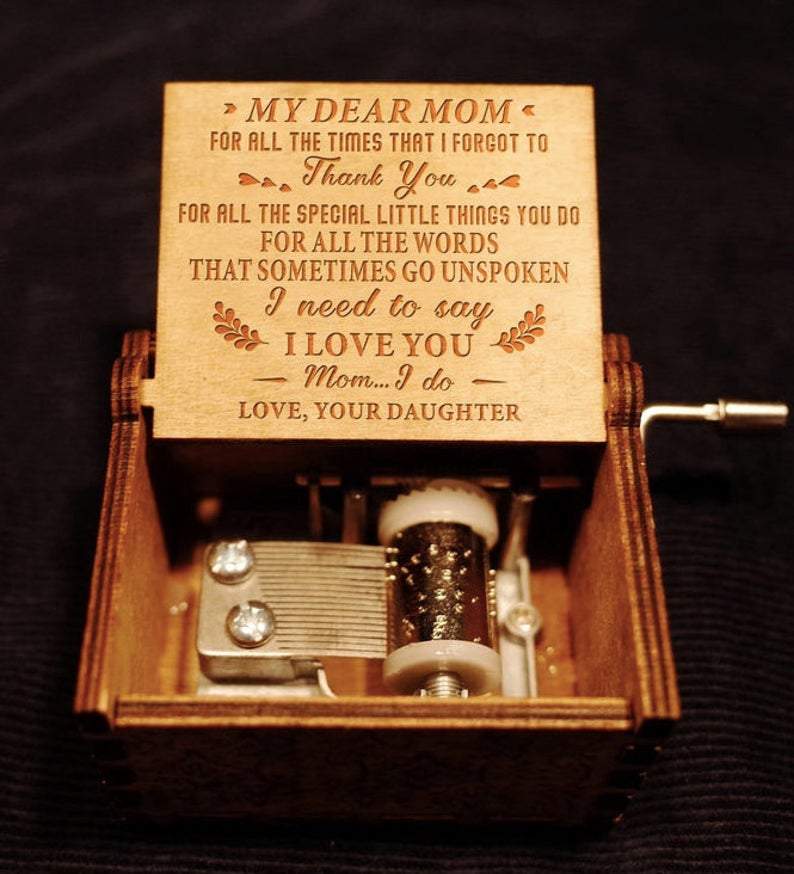 MY DEAR MOM
FOR ALL THE TIMES THAT I FORGOT TO
Thank You
FOR ALL THE SPECIAL LITTLE THINGS YOU DO
FOR ALL THE WORDS
THAT SOMETIMES GO UNSPOKEN
I need to say
I LOVE YOU
Mom...I do
LOVE, YOUR DAUGHTER